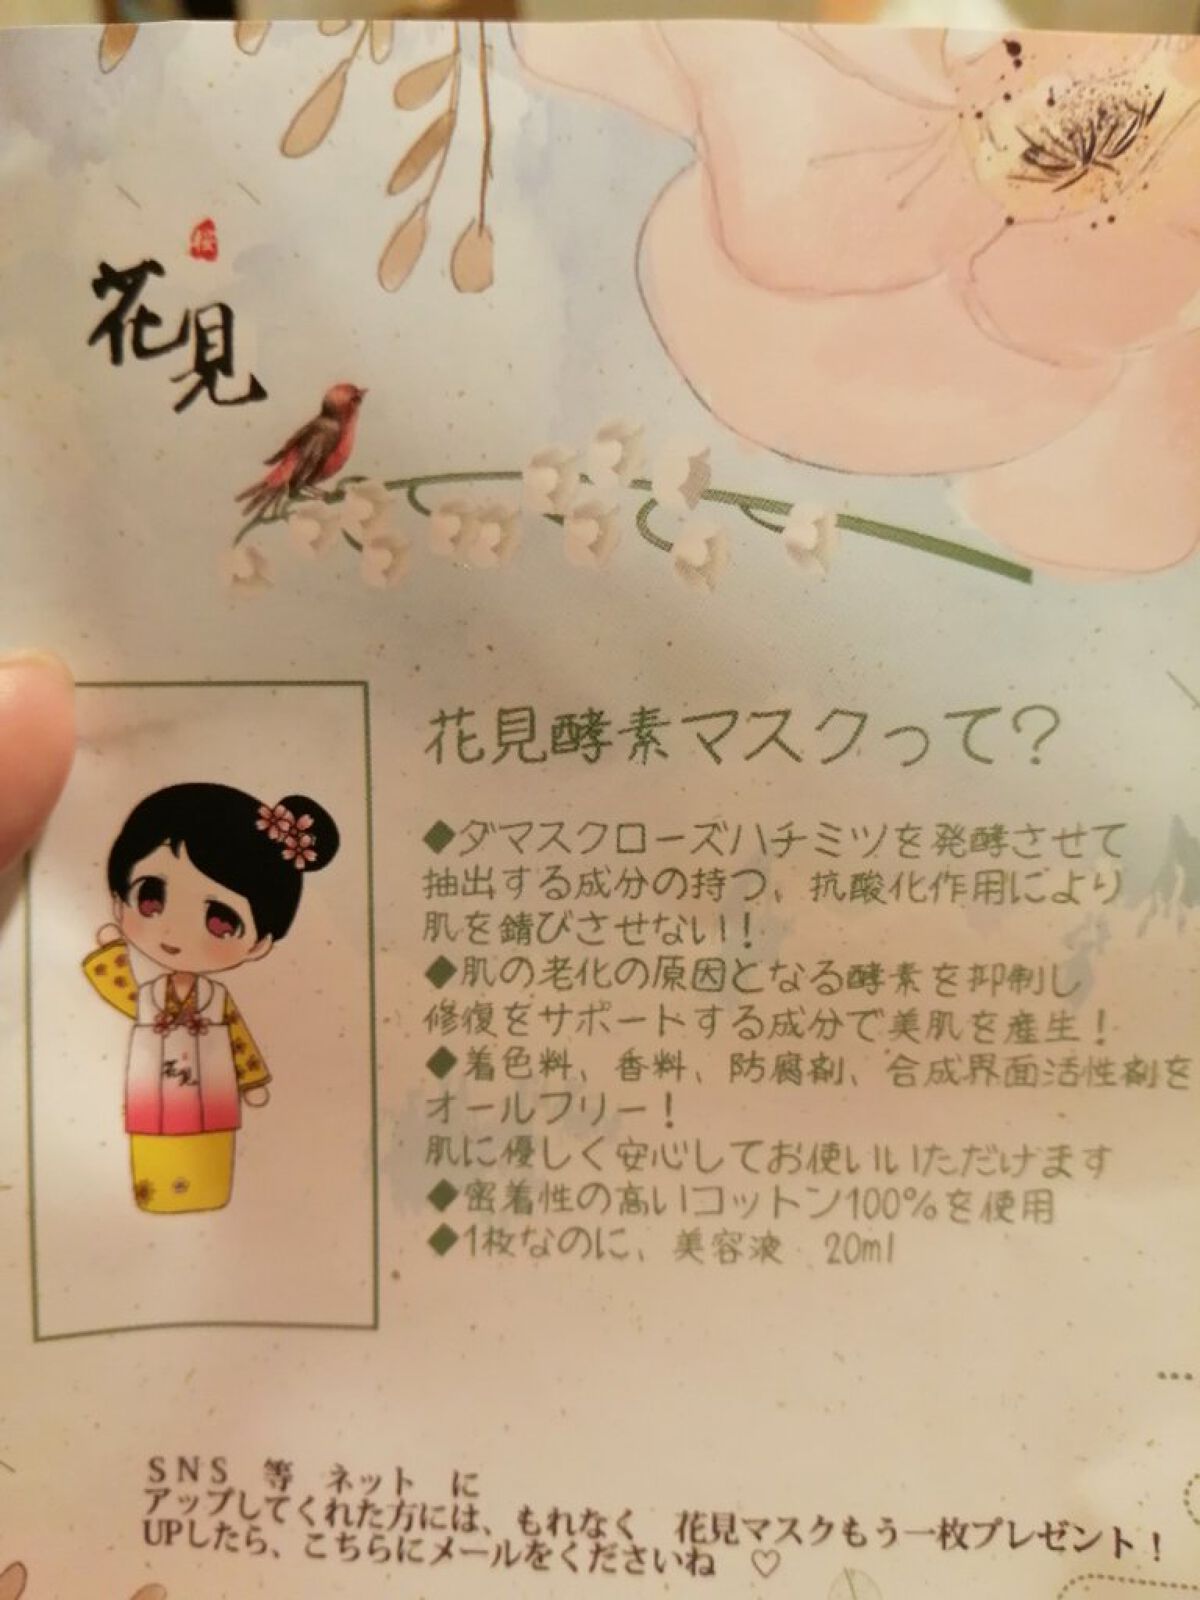 桜
花見
花見酵素マスクって?
◆ダマスクローズハチミツを発酵させて
抽出する成分の持つ、抗酸化作用により
肌を錆びさせない!
◆肌の老化の原因となる酵素を抑制し
修復をサポートする成分で美肌を産生!
◆着色料、香料、防腐剤、合成界面活性剤を
オールフリー!
肌に優しく安心してお使いいただけます
◆密着性の高いコットン100%を使用
◆1枚なのに、美容液 20ml
花見
SNS 等 ネット に
アップしてくれた方には、もれなく 花見マスクもう一枚プレゼント!
UPしたら、こちらにメールをくださいね ♡